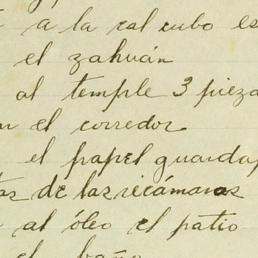 a la cal cubo es
el zahuán
al temple 3 pieza
n el corredor
el papel guarda
as de las recámaras
al óleo el patio
el baño